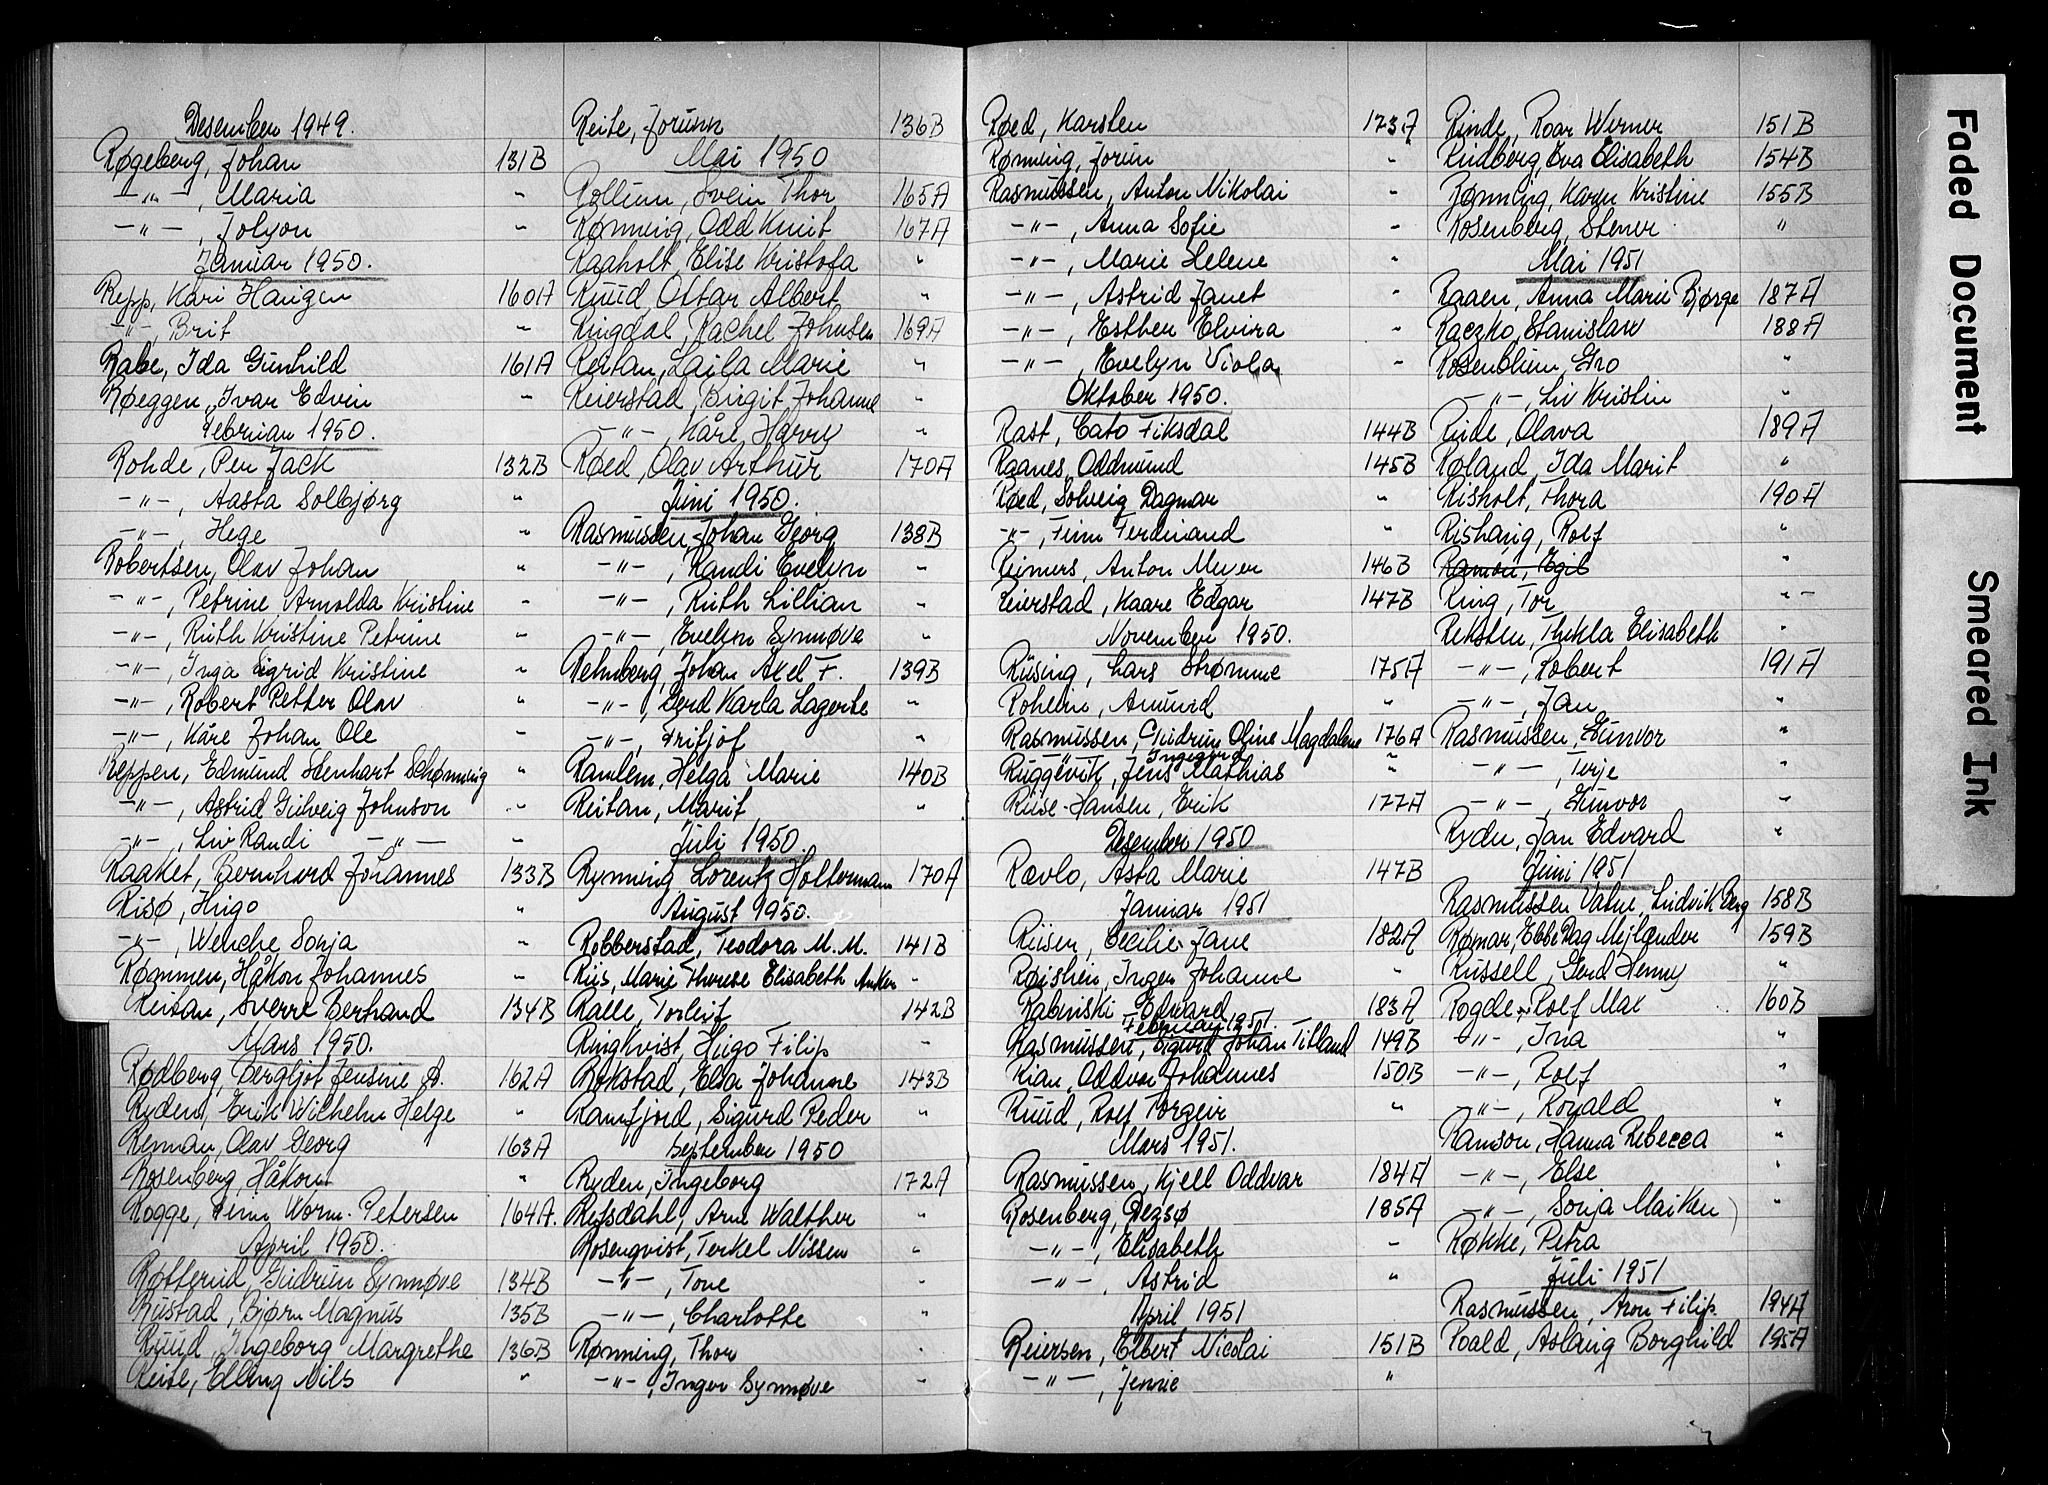 Desember 1949.
Røgeberg, Johan 131B
-"-, Maria "
-"-, Jolyon "
Januar 1950.
Repp, Kari Haugen 160A
-"-, Brit "
Rabe, Ida Gunhild 161A
Røeggen, Ivar Edvin "
Februar 1950.
Rohde, Per Jack 132B
-"-, Aasta Solbjørg "
-"-, Hege "
Robertsen, Olav Johan "
-"-, Petrine Arnolda Kristine "
-"-, Ruth Kristine Petrine "
-"-, Inga Sigrid Kristine "
-"-, Robert Petter Olav "
-"-, Kåre Johan Ole "
Reppen, Edmund Lenhart Schønning "
-"-, Astrid Gulveig Johnson "
-"-, Liv Randi -"- "
Raaket, Bernhard Johannes 133B
Risø, Hugo "
-"-, Wenche Sonja "
Rømmen, Håkon Johannes "
Reitan, Sverre Berhard 134B
Mars 1950.
Rødberg, Bergljot Jensine B. 162A
Ryden, Erik Wilhelm Helge "
Reyman, Olav Georg 163A
Rosenberg, Håkon "
Rogge, Finn Worm-Petersen 164A.
April 1950.
Røtterud, Gudrun Synnøve 134B
Rustad, Bjørn Magnus 135B
Ruud, Ingeborg Margrethe 136B
Reite, Elling Nils "
Reite, Jorunn 136B
Mai 1950
Rollum, Svein Thor 165A
Rønning, Odd Knut 167A
Raaholt, Elise Kristofa "
Ruud, Ottar Albert "
Ringdal, Rachel Johnsen 169A
Reitan, Laila Marie "
Reierstad, Birgit Johanne "
-"-, Kåre Harry "
Røed, Olav Arthur 170A
Juni 1950.
Rasmussen, Johan Georg 138B
-"-, Randi Evelyn "
-"-, Ruth Lillian "
-"-, Evelyn Synnøve "
Rehnberg, Johan Axel F. 139B
-"-, Gerd Karla Lagerte "
-"-, Fritjof "
Ramlem, Helga Marie 140B
Reitan, Marit "
Juli 1950.
Rynning Lorentz Holtermann 170A
August 1950.
Robberstad, Teodora M. M. 141B
Riis, Marie Therese Elisabeth Anker "
Ralle, Torleif 142B
Ringkvist, Hugo Filip "
Rokstad, Elsa Johanne 143B
Ramfjord, Sigurd Peder "
September 1950
Ryden, Ingeborg 172A
Refsdahl, Arne Walther "
Rosenqvist, Terkel Nissen "
-"-, Tone "
-"-, Charlotte "
Rønning, Thor "
-"-, Inger Synnøve "
Røed, Karsten 173A
Rønning, Jorun "
Rasmussen, Anton Nikolai "
-"-, Anna Sofie "
-"-, Marie Helene "
-"-, Astrid Janet "
-"-, Esther Elvira "
-"-, Evelyn Viola "
Oktober 1950.
Rast, Cato Fiksdal 144B
Raanes, Oddmund 145B
Røed, Solveig Dagmar "
-"-, Finn Ferdinand "
Reimers, Anton Meyer 146B
Reierstad, Kaare Edgar 147B
November 1950.
Riising, Lars Strømme 175A
Roheim, Amund "
Rasmussen, Gudrun Oline Magdalene 176A
" Ingegerd
Ruggevik, Jens Mathias "
Riise-Hansen, Erik 177A
Desember 1950
Rævlo, Asta Marie 147B
Januar 1951
Riisen, Cecilie Jane 182A
Røishein, Inger Johanne "
Rabinski Edward 183A
Februar 1951.
Rasmussen, Sigurd Johan Titland 149B
Rian, Oddvar Johannes 150B
Ruud, Rolf Torgeir "
Mars 1951.
Rasmussen, Kjell Oddvar 184A
Rosenberg, Dezsø 185A
-"-, Elisabeth "
-"-, Astrid "
April 1951
Reiersen, Elbert Nicolai 151B
-"-, Jennie "
Rinde, Roar Werner 151B
Rudberg, Eva Elisabeth 154B
Rønning, Karen Kristine 155B
Rosenberg, Stener "
Mai 1951
Raaen, Anna Marie Bjørge 187A
Raczko, Stanislaw 188A
Rosenblum, Gro "
-"-, Liv Kristin "
Rude, Olava 189A
Røland, Ida Marit "
Risholt, Thora 190A
Rishaug, Rolf "
Ramón, Egil "
Ring, Tor "-
Reksten, Thekla Elisabeth "
-"-, Robert 191A
-"-, Jan "
Rasmussen, Gunvor "
-"-, Terje "
-"-, Gunvor "
Ryden, Jan Edvard "
Juni 1951
Rasmussen Vatne, Ludvik Berg 158B
Rømar, Ebbe Dag Mejlænder 159B
Russell, Gerd Henny "
Rogde, Rolf Max 160B
-"-, Ina "
-"-, Rolf "
-"-, Ronald "
Ramson, Hanna Rebecca "
-"-, Else "
-"-, Sonja Maiken "
Røkke, Petra
Juli 1951
Rasmussen, Aron Filip. 194A
Roald, Aslaug Borghild 195A
Faded Document
Smeared Ink